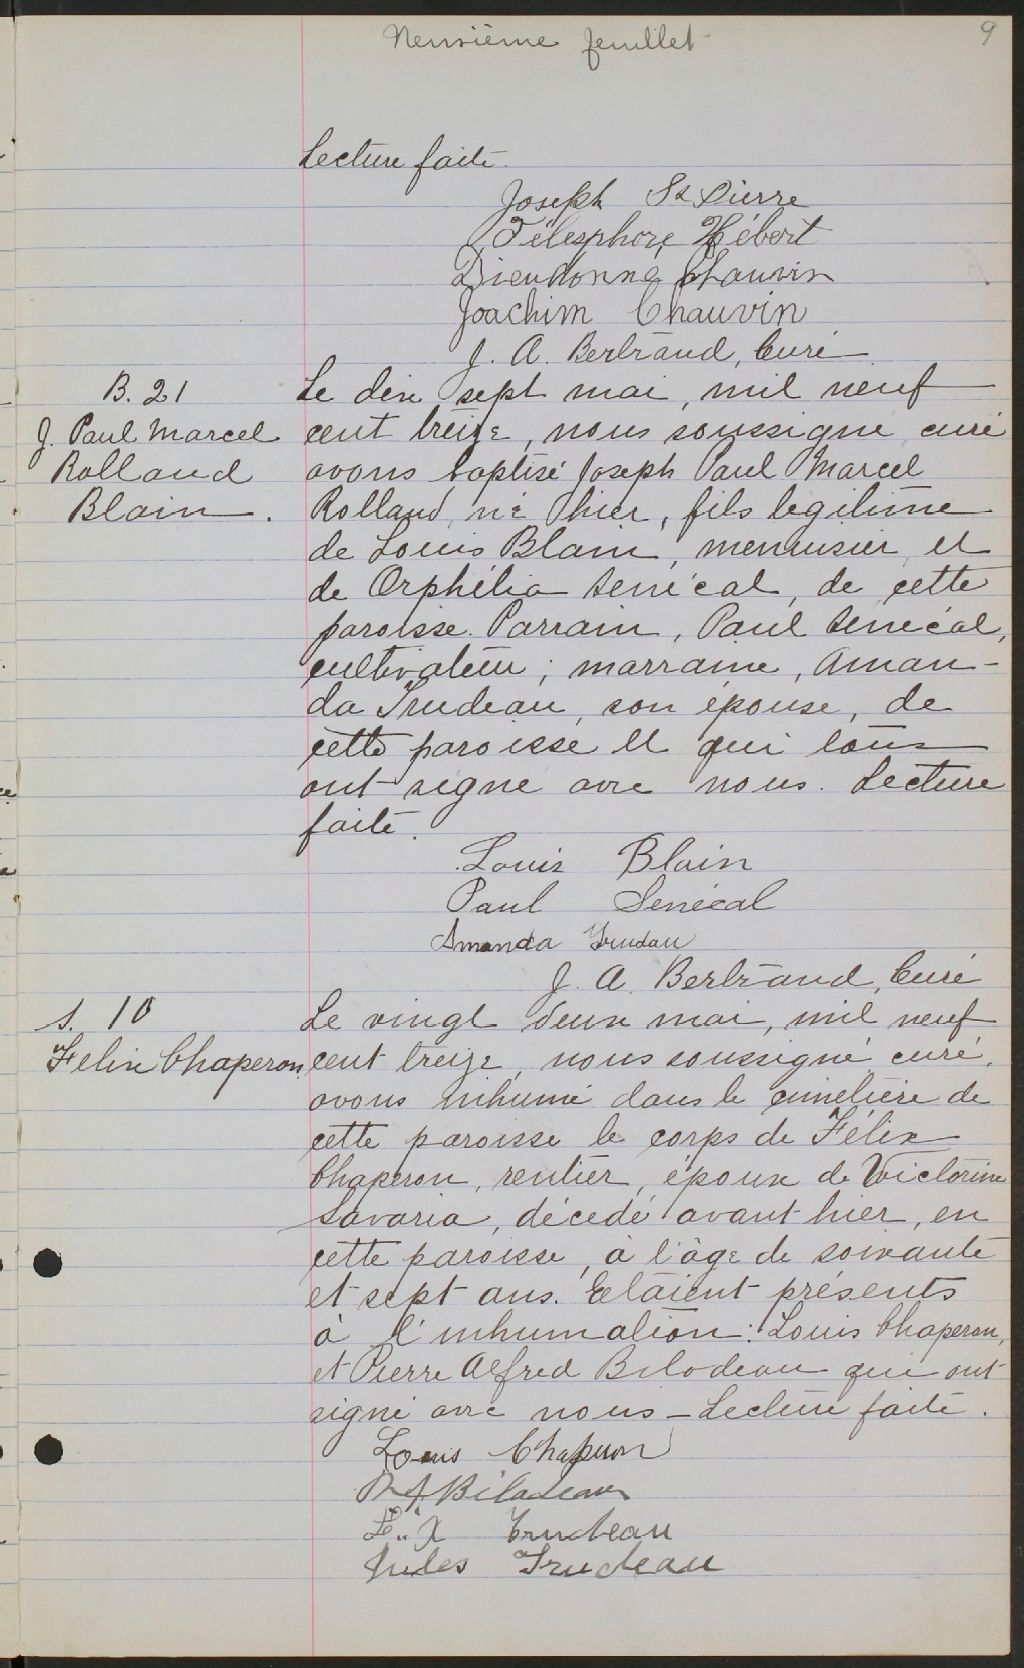 Neuvième feuillet
9
Lecture faite.
Joseph St Pierre
Télesphore Hébert
Dieudonné Chauvin
Joachim Chauvin
J. A. Bertrand, Curé
B. 21
J. Paul Marcel
Rolland
Blain.
Le dix sept mai, mil neuf
cent treize, nous soussigné curé
avons baptisé Joseph Paul Marcel
Rolland, né hier, fils légitime
de Louis Blain, menuisier, et
de Orphélia Senécal, de cette
paroisse. Parrain, Paul Senécal,
cultivateur; marraine, Aman-
da Trudeau, son épouse, de
cette paroisse et qui tous
ont signé avec nous. Lecture
faite.
Louis Blain
Paul Senécal
Amanda Trudau
J. A. Bertrand, Curé
S. 10
Felix Chaperon
Le vingt deux mai, mil neuf
cent treize, nous soussigné curé,
avons inhumé dans le cimetière de
cette paroisse le corps de Félix
Chaperon, rentier, époux de Victorine
Savaria, décédé avant hier, en
cette paroisse, à l'âge de soixante
et sept ans. Etaient présents
à l'inhumation: Louis Chaperon,
et Pierre Alfred Bilodeau qui ont
signé avec nous - Lecture faite.
Louis Chaperon
P A Bilodeau
F. X Trudeau
Jules Trudeau